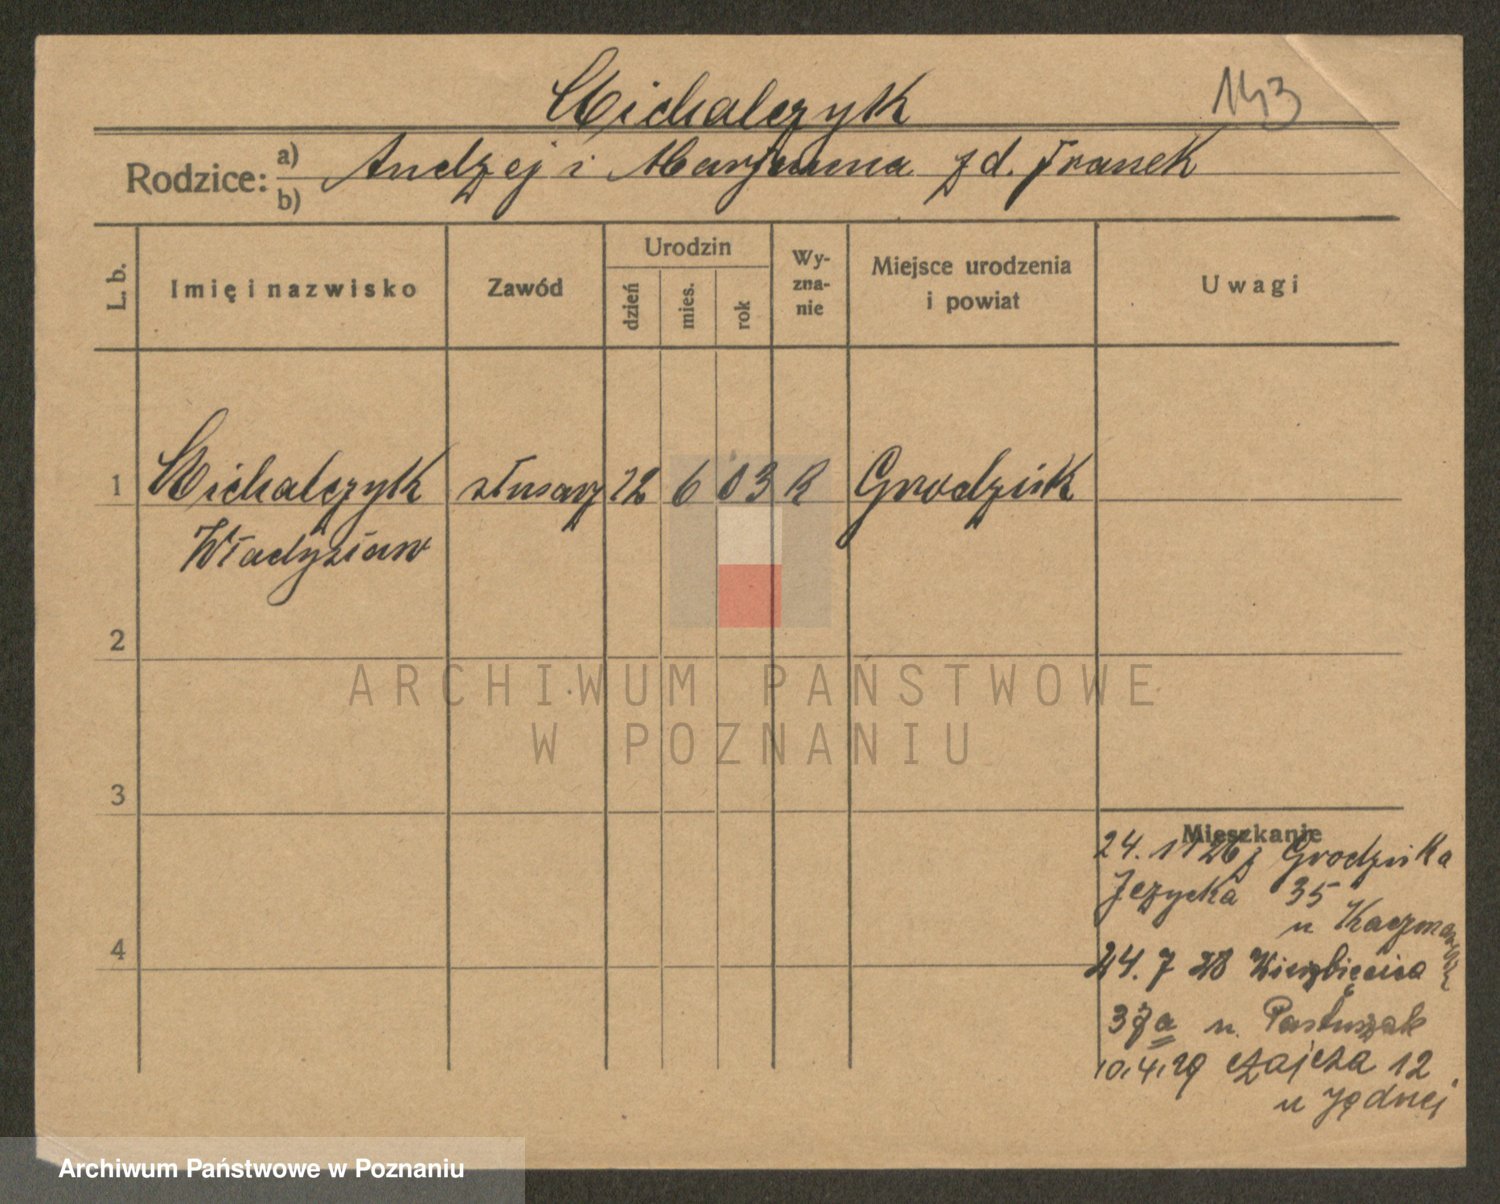 Michalczyk
143
Rodzice: a) b) Andzej i Marjanna z d. Franek
L. b.
Imię i nazwisko
Zawód
Urodzin
dzień
mies.
rok
Wy-
zna-
nie
Miejsce urodzenia
i powiat
Uwagi
1 Michalczyk ślusarz 22 6 03 R Grodzisk
Władysław
2
3
4
Mieszkanie
24. 11 26 z Grodziska
Jeżycka 35
u Kaczmarek
24. 7 28 Wierzbięcica
37a u. Pastuszak
10.4.29 Czajcza 12
u Jędnej
ARCHIWUM PAŃSTWOWE
W POZNANIU
Archiwum Państwowe w Poznaniu